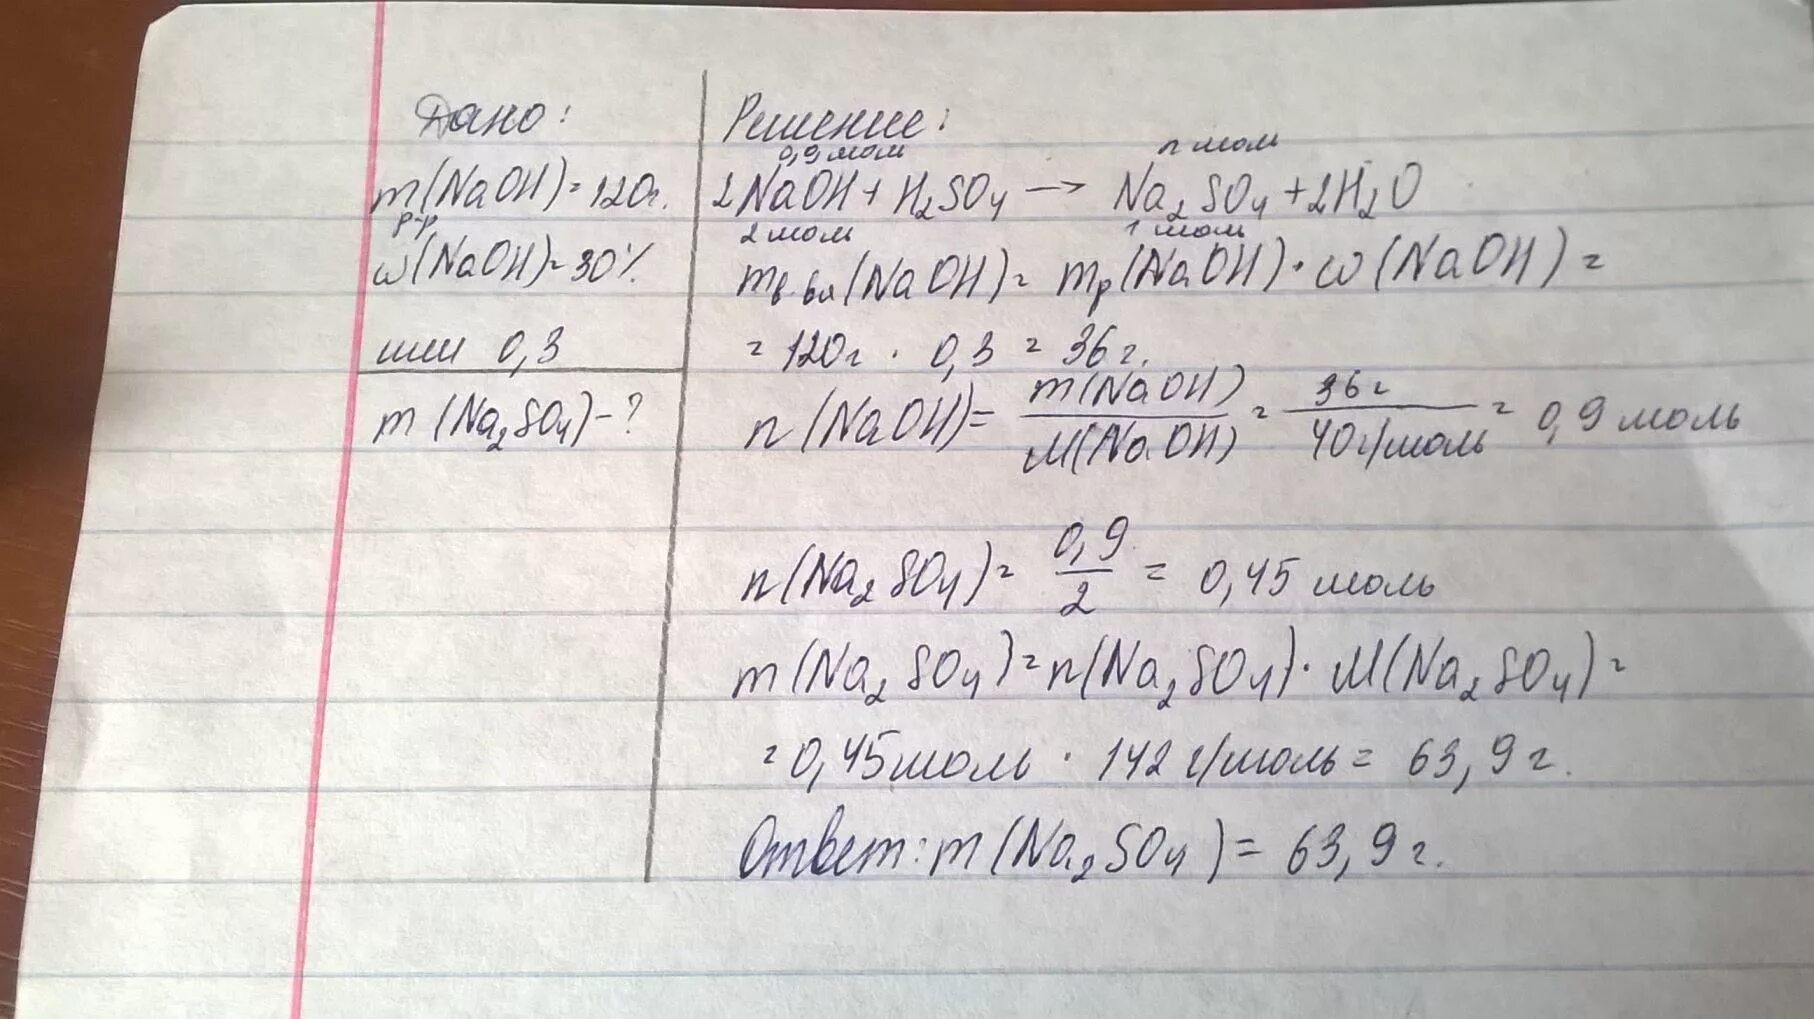 Дано:
m(NaOH)=120г.
р-р
ω(NaOH)=30%
или 0,3
m(Na₂SO₄)-?
Решение:
0,9 мол n мол
2NaOH + H₂SO₄ → Na₂SO₄ + 2H₂O
2 мол 1 мол
mв.ва(NaOH)= mр(NaOH)·ω(NaOH)=
=120г · 0,3 = 36 г.
n(NaOH)= m(NaOH)/M(NaOH) = 36г/40г/моль = 0,9 моль
n(Na₂SO₄)= 0,9/2 = 0,45 моль
m(Na₂SO₄)=n(Na₂SO₄)·M(Na₂SO₄)=
=0,45моль · 142 г/моль = 63,9 г.
Ответ: m(Na₂SO₄)= 63,9 г.